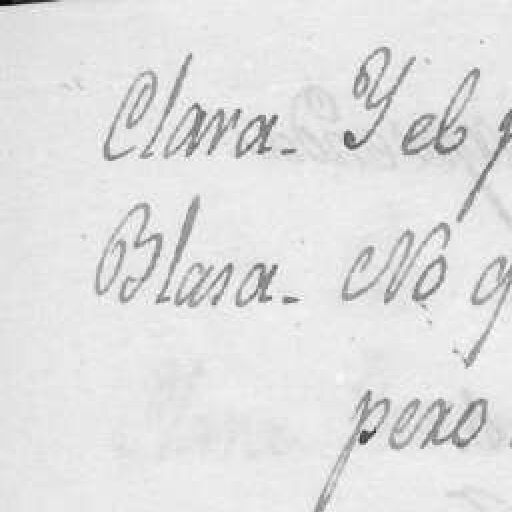 Clara. Y el
Blasa. No
pero